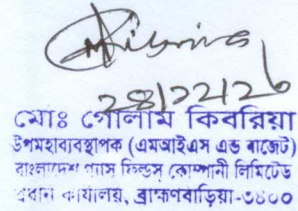 ২৪/১১/২১
মোঃ গোলাম কিবরিয়া
উপমহাব্যবস্থাপক (এমআইএস এন্ড বাজেট)
বাংলাদেশ গ্যাস ফিল্ডস্ কোম্পানী লিমিটেড
প্রধান কার্যালয়, ব্রাহ্মণবাড়িয়া-৩৪০০